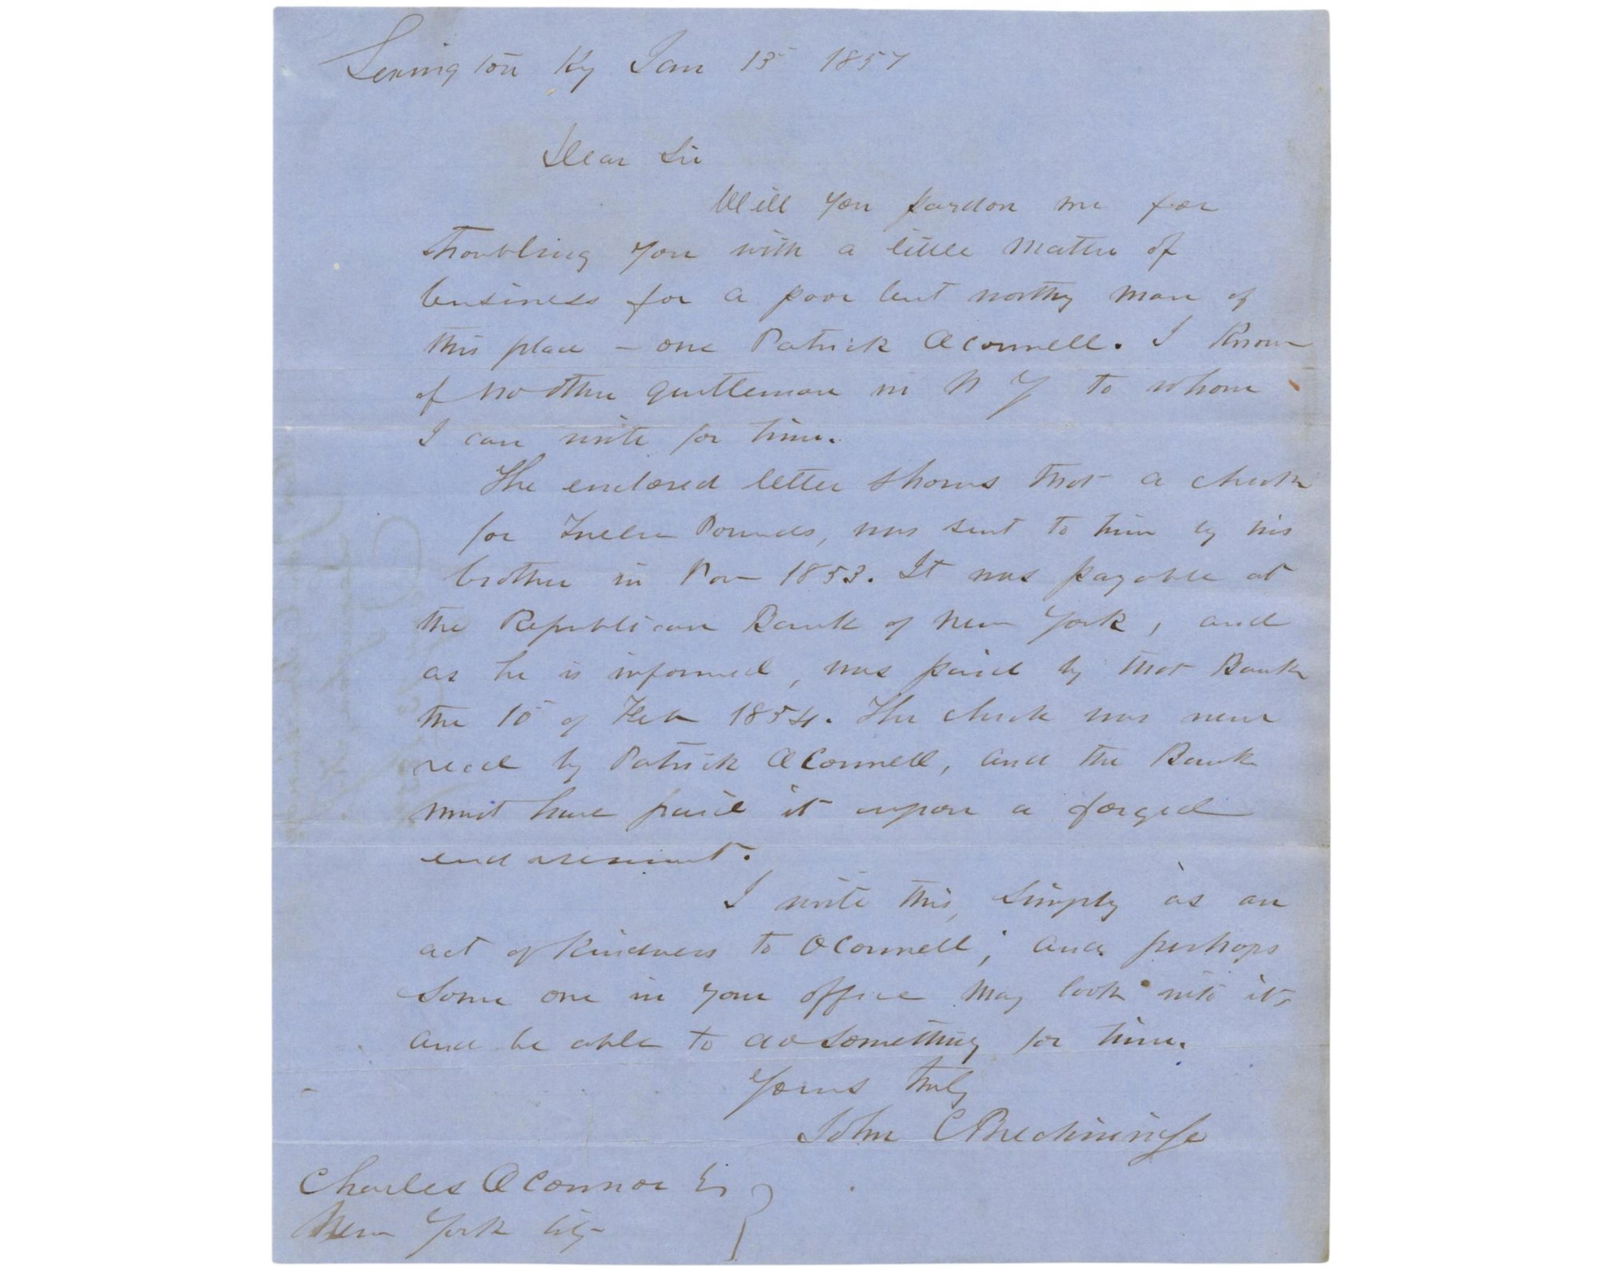 Lexington Ky Jan 13 1857
Dear Sir
Will you pardon me for
troubling you with a little matter of
business for a poor but worthy man of
this place – one Patrick OConnell. I know
of no other gentleman in N Y to whom
I can write for him.
The enclosed letter shows that a check
for Twelve Pounds, was sent to him by his
brother in Nov 1853. It was payable at
the Republican Bank of New York, and
as he is informed, was paid by that Bank
the 10 of Feb 1854. The check was never
recd by Patrick OConnell, and the Bank
must have paid it upon a forged
endorsement.
I write this, simply as an
act of kindness to OConnell; and perhaps
some one in your office may look into it,
and be able to do something for him.
Yours truly
John C Breckinridge
Charles OConnor Es
New York City